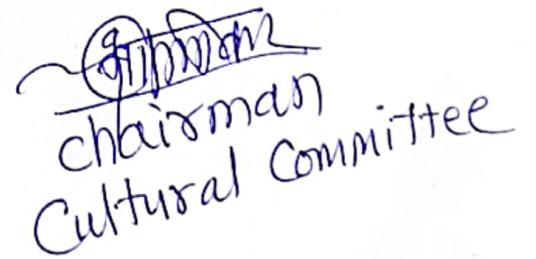 chairman
Cultural Committee